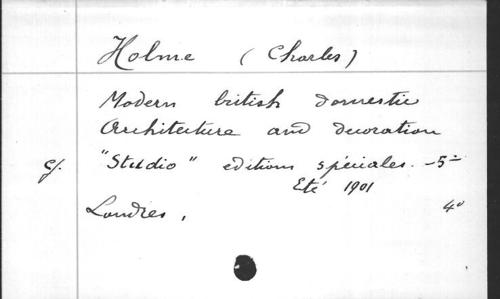 Holme (Charles)
Modern british domestic
Architecture and decoration
"Studio" editions spéciales. -5=
Eté 1901
Londres,
4°